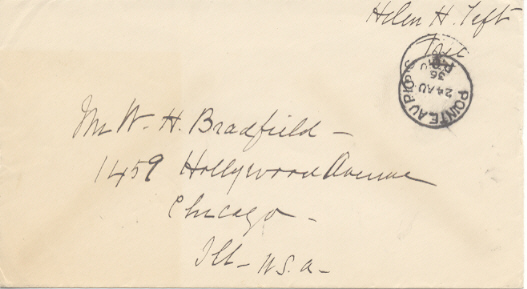 Helen H. Taft
Free
POINTE AU PIC
24 AU
36
Mr W. H. Bradfield -
1459 Hollywood Avenue
Chicago -
Ill - U.S.A -